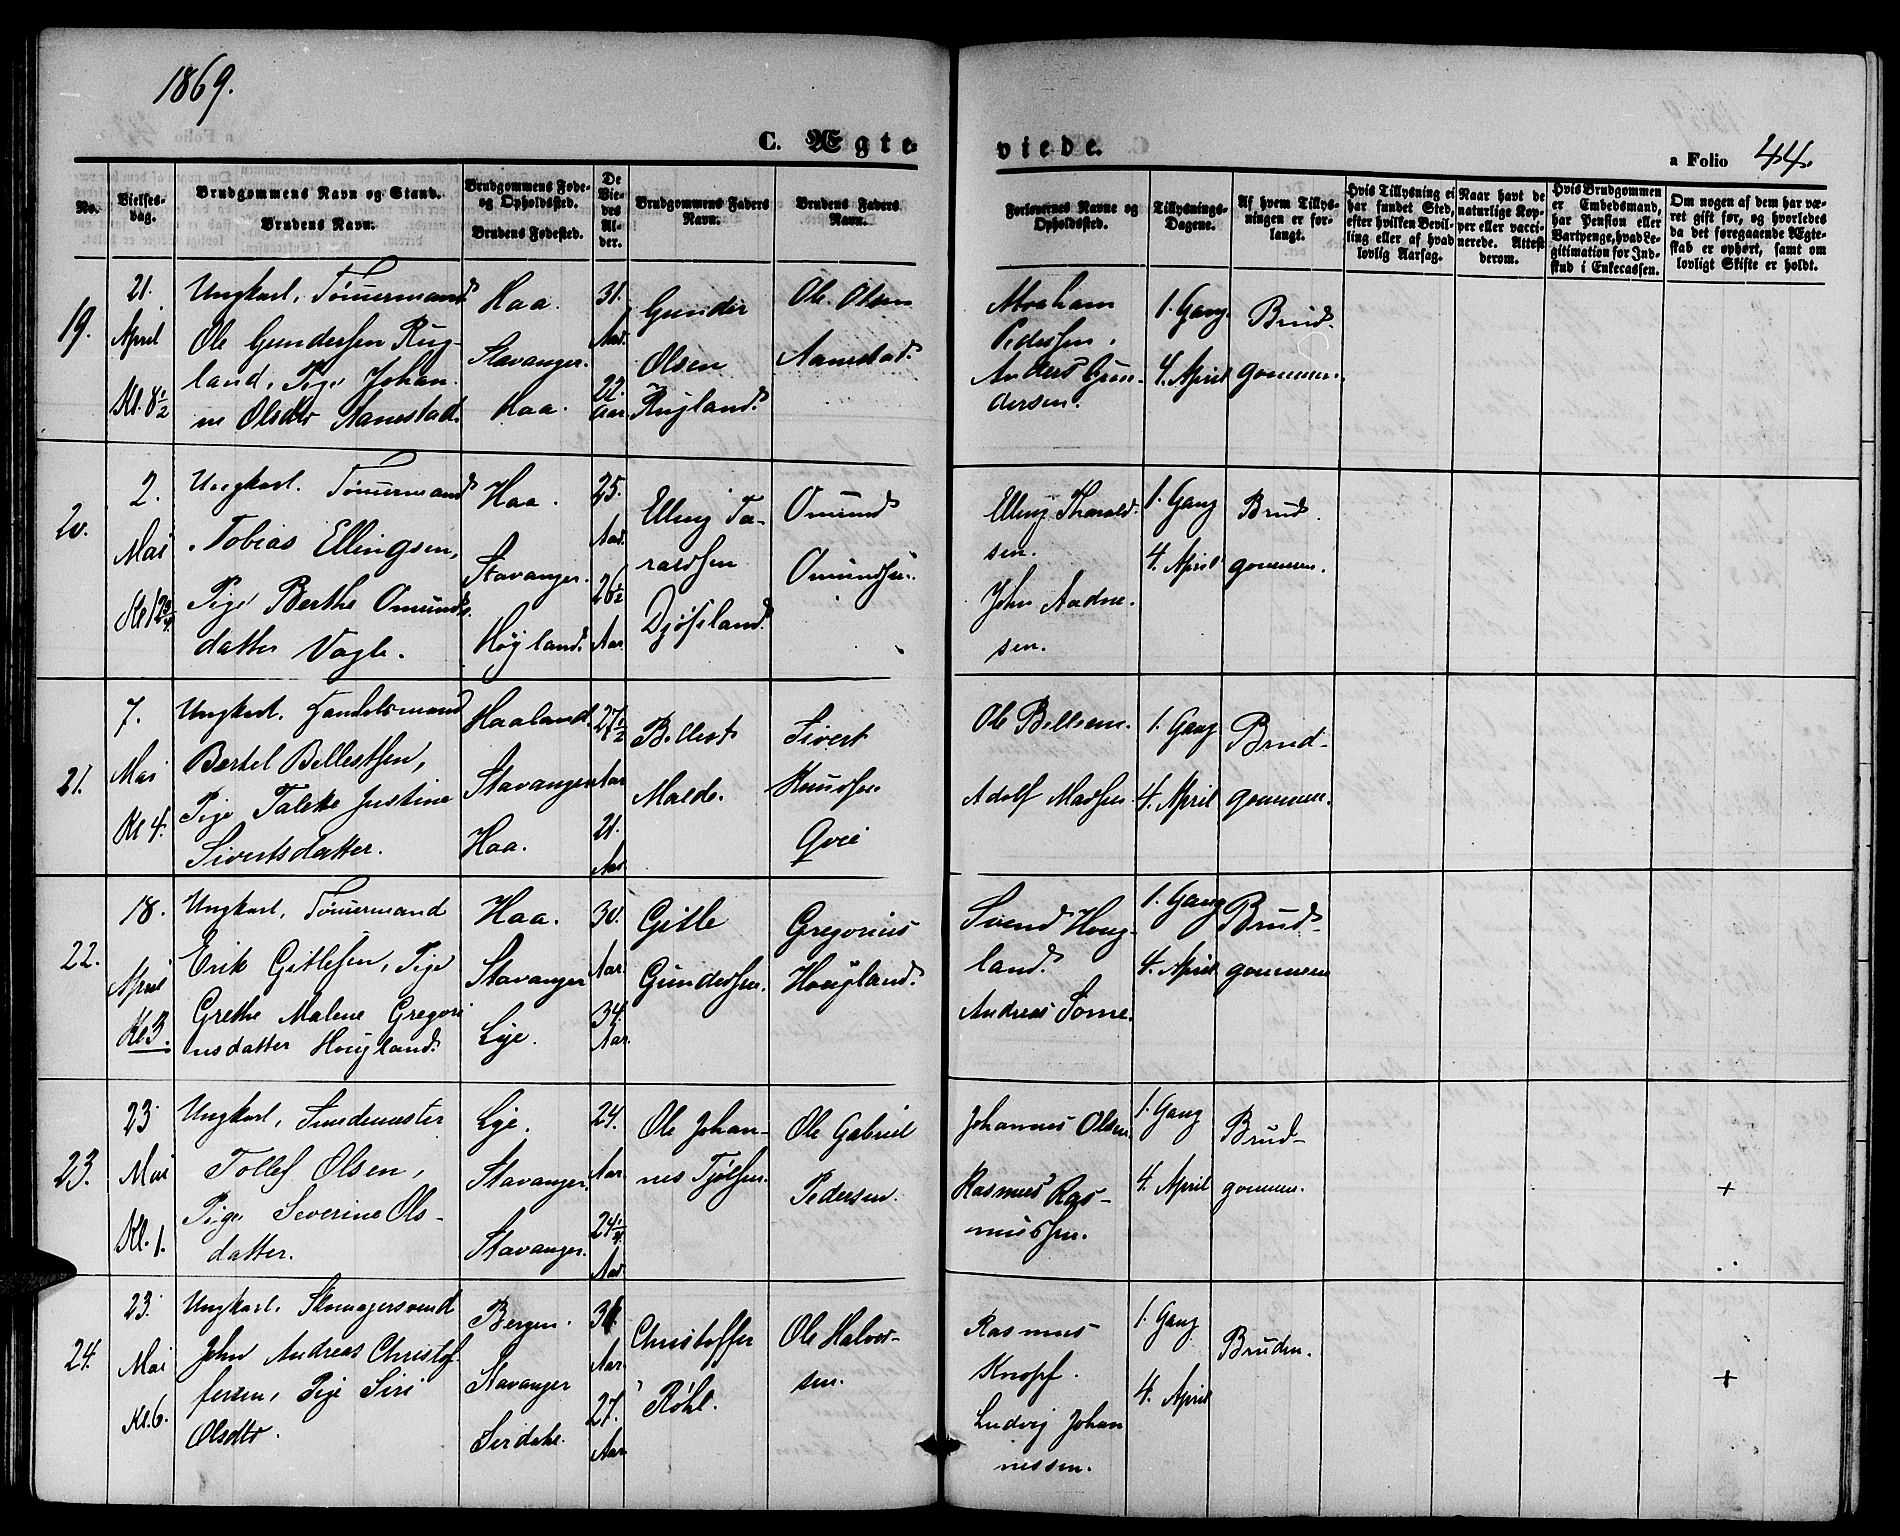 1869.
C. Ægte
viede.
a Folio 44.
No.
Vielses-
dag.
Brudgommens Navn og Stand.
Brudens Navn.
Brudgommens Føde-
og Opholdssted.
Brudens Fødested.
De
Vie-
des
Al-
der.
Brudgommens Faders
Navn.
Brudens Faders
Navn.
Forlovernes Navne og
Opholdssted.
Tillysnings-
Dagene.
Af hvem Tillys-
ningen er for-
langt.
Hvis Tillysning ei
har fundet Sted,
efter hvilken Bevil-
ling eller af hvad
lovlig Aarsag.
Naar havt de
naturlige Kop-
per eller vacci-
nerede. Attest
derom.
Hvis Brudgommen
er Embedsmand,
har Pension eller
Vartpenge, hvad Le-
gitimation for Ind-
skud i Enkecassen.
Om nogen af dem har væ-
ret gift før, og hvorledes
da det foregaaende Ægte-
skab er ophørt, samt om
lovligt Skifte er holdt.
19.
21.
April
Kl. 8 1/2
Ungkarl, Tømmermand
Ole Gundersen Rug-
land, Pige Johan-
ne Olsdtr Aanestad.
Haa.
Stavanger.
Haa.
31.
Aar.
22.
Aar
Gunder
Olsen
Rugland.
Ole Olsen
Aanestad.
Abraham
Pedersen,
Anders Gun-
dersen.
1. Gang
4. April
Brud-
gommen.
20.
2.
Mai
Kl 12 3/4
Ungkarl. Tømmermand
Tobias Ellingsen,
Pige Berthe Omunds-
datter Vagle.
Haa.
Stavanger.
Høyland.
25.
Aar.
26 1/2
Aar
Elling Ta-
raldsen
Djøsland.
Omund
Omundsen.
Elling Tharald-
sen.
John Aadne-
sen.
1. Gang
4. April
Brud-
gommen.
21.
7.
Mai
Kl 4.
Ungkarl. Handelsmand
Bertel Bellestsen,
Pige Talette Justine
Sivertsdatter.
Haaland.
Stavanger
Haa.
27 1/2
Aar
21.
Aar
Bellest
Malde.
Sivert
Knudsen
Qvie
Ole Bellesen.
Adolf Madsen.
1. Gang
4. April
Brud-
gommen.
22.
18.
April
Kl 3.
Ungkarl, Tømmermand
Erik Gitlesen, Pige
Grethe Malene Gregori
usdatter Hougland.
Haa.
Stavanger
Lye.
30.
Aar.
34.
Aar.
Gitle
Gundersen.
Gregorius
Hougland.
Svend Houg-
land.
Andreas Somme.
1. Gang
4. April
Brud-
gommen
23.
23
Mai
Kl. 1.
Ungkarl, Smedemester
Tollef Olsen,
Pige Severine Ols-
datter.
Lye.
Stavanger.
Stavanger.
24.
Aar
24 1/4
Aar.
Ole Johan-
nes Tjølsen.
Ole Gabriel
Pedersen.
Johannes Olsen.
Rasmus Ras-
mussen.
1. Gang
4. April
Brud-
gommen.
+
24.
23.
Mai
Kl. 6.
Ungkarl. Skomagersvend
John Andreas Christof-
fersen, Pige Siri
Olsdtr.
Bergen.
Stavanger
Sirdahl.
Aar
27.
Aar
Christoffer
Röhl.
Ole Halvor-
sen.
Rasmus
Knopf.
Ludvig Johan
nessen.
1. Gang
4. April
Bruden.
+